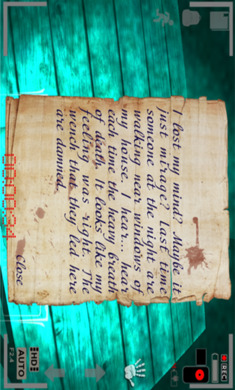 I lost my mind? Maybe it
just mirage? Last time
someone at the night are
walking near windows of
my house. I hear... hear
each time the have breath
of death. It looks like my
feeling was right. The
wench that they led here
are damned.
close
REC
HD
AUTO
F2.4